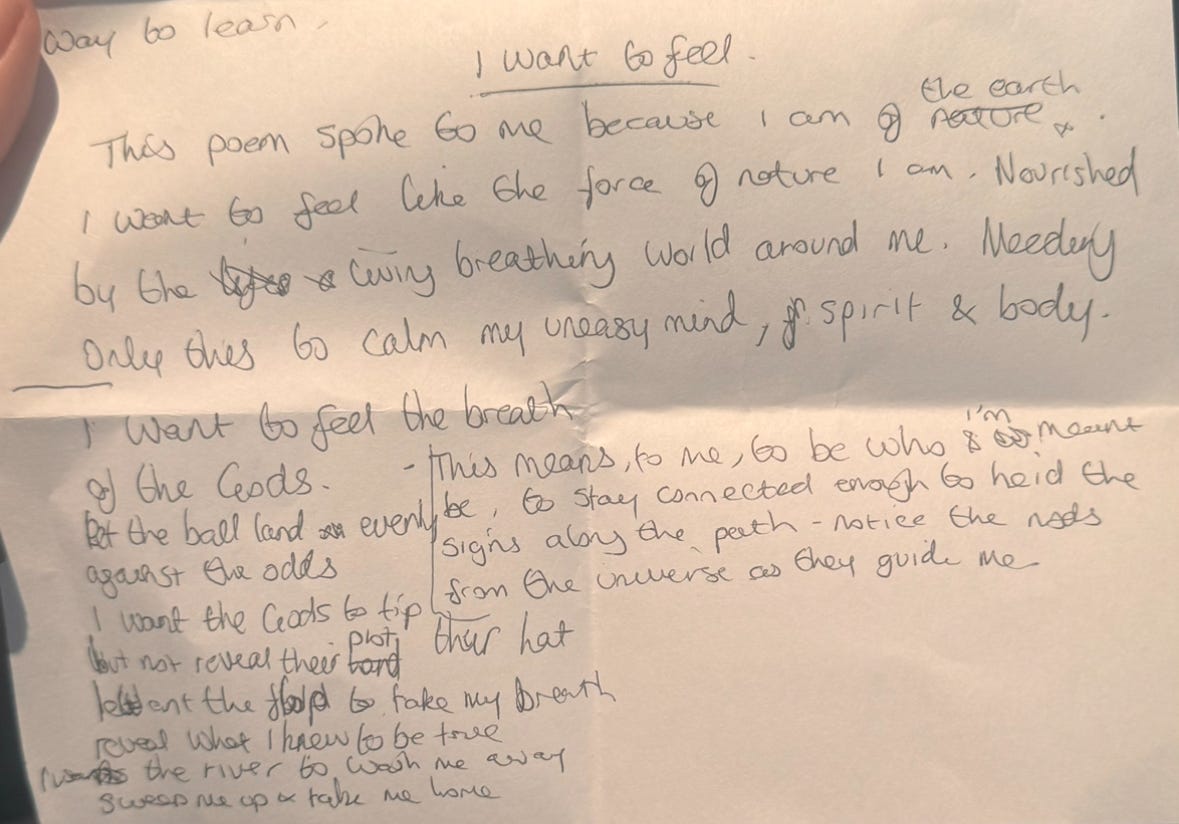 way to learn.
I want to feel.
the earth
This poem spoke to me because I am of nature.
I want to feel like the force of nature I am. Nourished
by the living breathing world around me. Needing
only this to calm my uneasy mind, spirit & body.
I want to feel the breath
of the Gods.
let the ball land evenly
against the odds
I want the Gods to tip their hat
but not reveal their hand plot
the to take my breath
reveal what I knew to be true
the river to wash me away
sweep me up & take me home
- This means, to me, to be who I'm meant
be, to stay connected enough to heid the
signs along the path - notice the nods
from the universe as they guide me